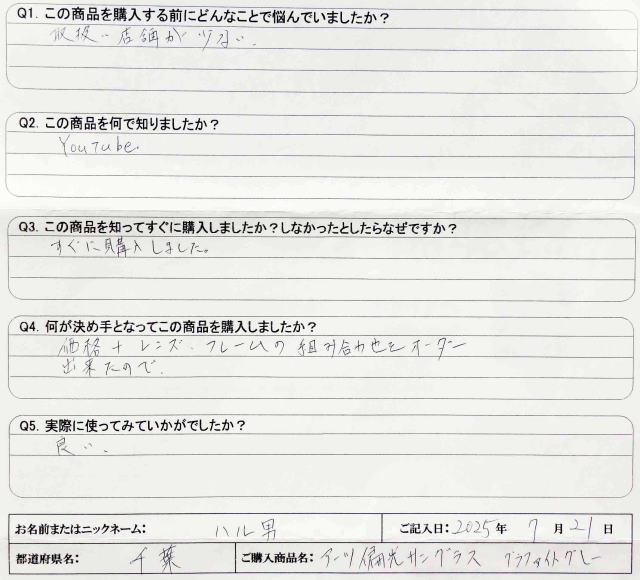 Q1. この商品を購入する前にどんなことで悩んでいましたか？
取扱い店舗が少ない.
Q2. この商品を何で知りましたか？
YouTube.
Q3. この商品を知ってすぐに購入しましたか？しなかったとしたらなぜですか？
すぐに購入しました。
Q4. 何が決め手となってこの商品を購入しましたか？
価格＋レンズ、フレームの組み合わせをオーダー
出来たので.
Q5. 実際に使ってみていかがでしたか？
良い、
お名前またはニックネーム: ハル男 ご記入日: 2025年 7月21日
都道府県名: 千葉 ご購入商品名: 偏光サングラス グラファイトグレー